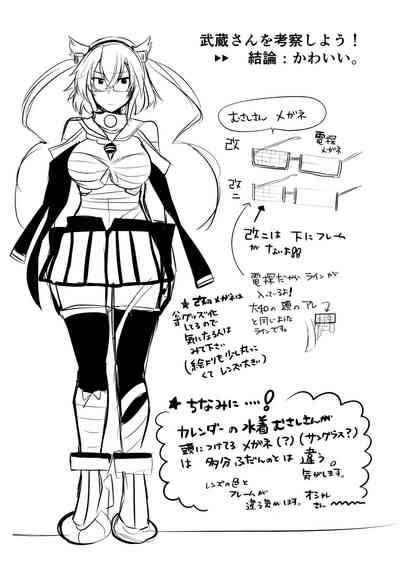 武蔵さんを考察しよう！
▶▶ 結論：かわいい。
むさしさん メガネ
改
電探
メガネ
改
二
改二は 下にフレーム
がないよ!!
電探だから ラインが
入ってるよ！
大和の 頭のアレ
と同じような
ラインです。
★改のメガネは
公式グッズ化
してるので
気になる人は
みて下さい
(絵よりも少し丸っこ
くて レンズ大きい)
★ ちなみに……！
カレンダーの 水着むさしさんが
頭につけてる メガネ(？)(サングラス？)
は 多分 ふだんのとは 違う
気がします。
レンズの色と
フレームが
違う気がします。
オシャレ
さん